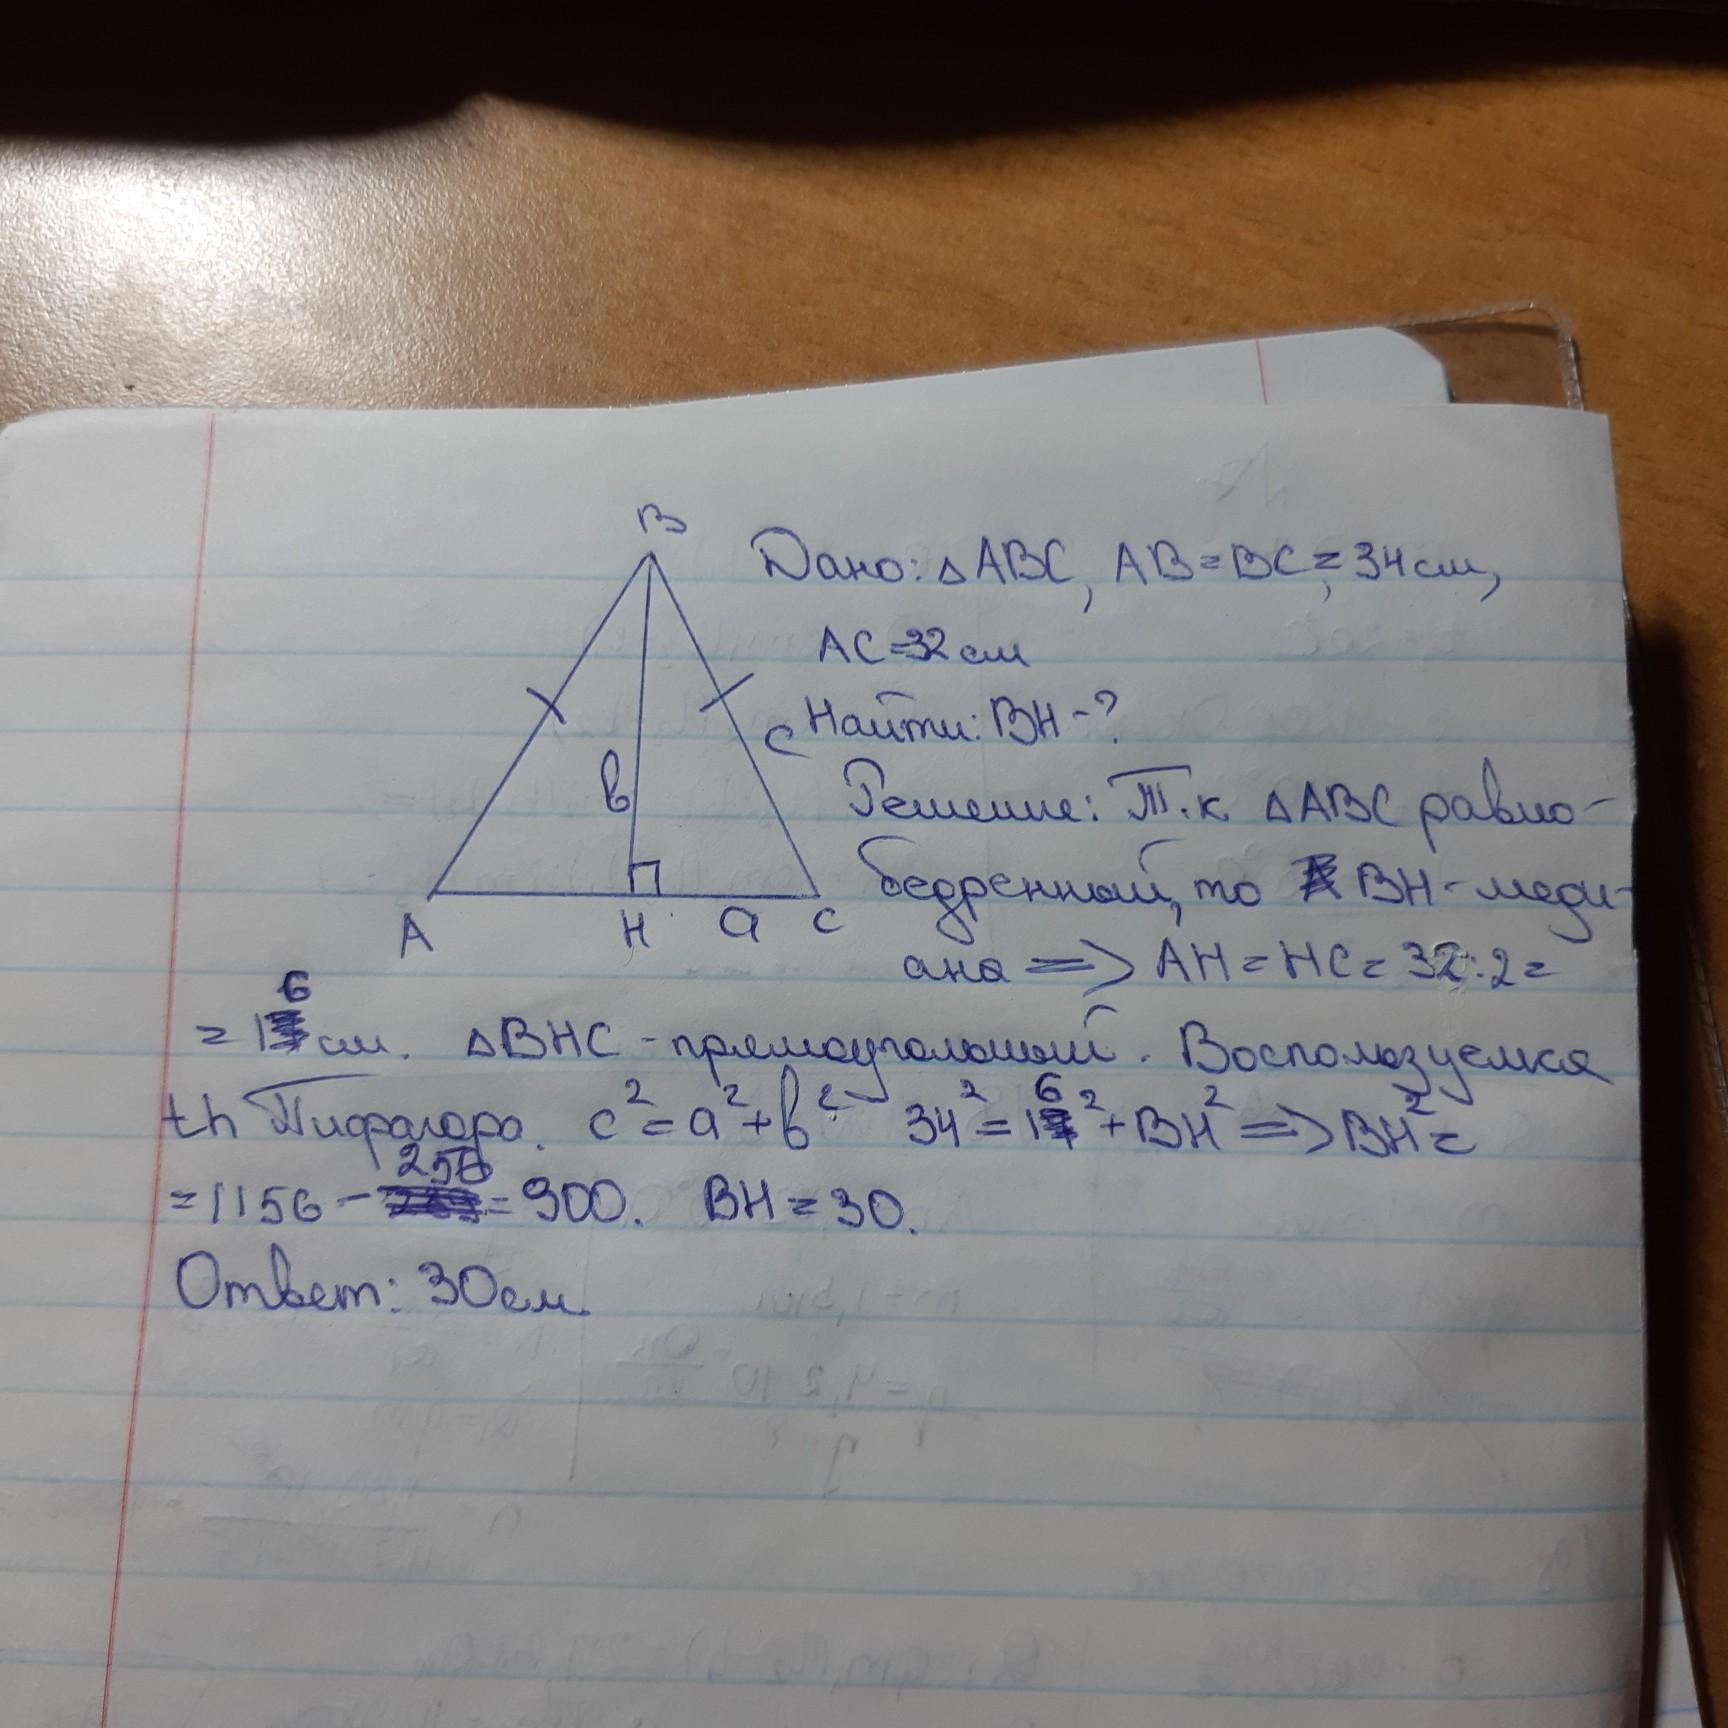 B
Дано: △ABC, AB = BC = 34 см,
AC = 32 см
Найти: BH - ?
c
Решение: Т.к △ABC равно-
в
бедренный, то BH - меди-
A H a C
ана => AH = HC = 32:2 =
= 16 см. △BHC - прямоугольный. Воспользуемся
th Пифагора. c² = a² + b² 34² = 16² + BH² => BH² =
= 1156 - 256 = 900. BH = 30.
Ответ: 30 см.